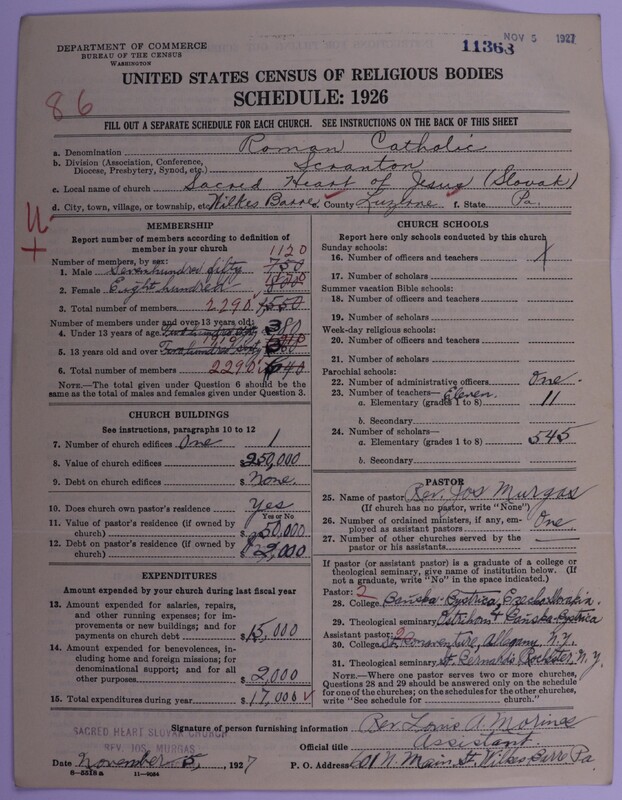 DEPARTMENT OF COMMERCE
BUREAU OF THE CENSUS
WASHINGTON
11368
NOV 5 1927
UNITED STATES CENSUS OF RELIGIOUS BODIES
SCHEDULE: 1926
86
FILL OUT A SEPARATE SCHEDULE FOR EACH CHURCH. SEE INSTRUCTIONS ON THE BACK OF THIS SHEET
a. Denomination Roman Catholic
b. Division (Association, Conference, Diocese, Presbytery, Synod, etc.) Scranton
c. Local name of church Sacred Heart of Jesus (Slovak)
d. City, town, village, or township, etc. Wilkes Barre e. County Luzerne f. State Pa.
MEMBERSHIP
Report number of members according to definition of
member in your church
Number of members, by sex: 1120
1. Male Seven hundred fifty 750
2. Female Eight hundred 800
3. Total number of members 2290 1550
Number of members under and over 13 years old:
4. Under 13 years of age 380
5. 13 years old and over
6. Total number of members 2290
NOTE.—The total given under Question 6 should be the
same as the total of males and females given under Question 3.
CHURCH BUILDINGS
See instructions, paragraphs 10 to 12
7. Number of church edifices One 1
8. Value of church edifices $250,000
9. Debt on church edifices $ None.
10. Does church own pastor's residence Yes
Yes or No
11. Value of pastor's residence (if owned by
church) $50,000
12. Debt on pastor's residence (if owned by
church) $2,000
EXPENDITURES
Amount expended by your church during last fiscal year
13. Amount expended for salaries, repairs,
and other running expenses; for im-
provements or new buildings; and for
payments on church debt $15,000
14. Amount expended for benevolences, in-
cluding home and foreign missions; for
denominational support; and for all
other purposes $2,000
15. Total expenditures during year $17,000
CHURCH SCHOOLS
Report here only schools conducted by this church
Sunday schools:
16. Number of officers and teachers
17. Number of scholars
Summer vacation Bible schools:
18. Number of officers and teachers
19. Number of scholars
Week-day religious schools:
20. Number of officers and teachers
21. Number of scholars
Parochial schools:
22. Number of administrative officers One.
23. Number of teachers— Eleven.
a. Elementary (grades 1 to 8) 11
b. Secondary
24. Number of scholars—
a. Elementary (grades 1 to 8) 545
b. Secondary
PASTOR
25. Name of pastor Rev. Jos Murgas
(If church has no pastor, write "None")
26. Number of ordained ministers, if any, em-
ployed as assistant pastors One
27. Number of other churches served by the
pastor or his assistants
If pastor (or assistant pastor) is a graduate of a college or
theological seminary, give name of institution below. (If
not a graduate, write "No" in the space indicated.)
Pastor: 2
28. College Banska-Bystrica, Czechoslovakia.
29. Theological seminary Ostrihom + Banska-Bystrica
Assistant pastor: 2
30. College St. Bonaventure, Allegany N.Y.
31. Theological seminary St. Bernards Rochester, N.Y.
NOTE.—Where one pastor serves two or more churches,
Questions 28 and 29 should be answered only on the schedule
for one of the churches; on the schedules for the other churches,
write "See schedule for church."
Signature of person furnishing information Rev. Louis A.
SACRED HEART SLOVAK CHURCH
REV. JOS. MURGAS
Official title Assistant
Date November 5, 1927 P. O. Address 601 N. Main St. Wilkes Barre Pa.
8—5518a 11—9064